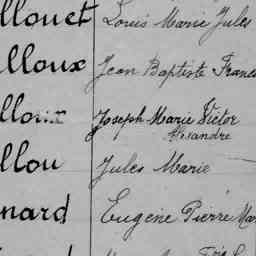 llouet Louis Marie Jules
lloux Jean Baptiste Franc
lloux Joseph Marie Victor
Alexandre
llou Jules Marie
nard Eugène Pierre Mar